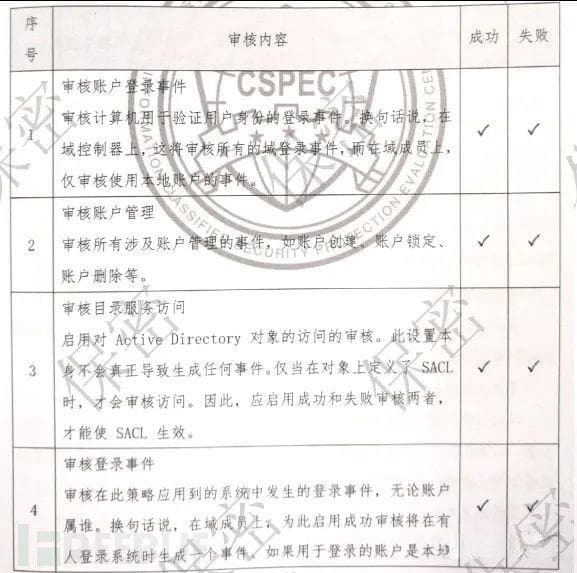 序号
审核内容
成功
失败
1
审核账户登录事件
审核计算机用于验证用户身份的登录事件。换句话说，在
域控制器上，这将审核所有的域登录事件，而在域成员上，
仅审核使用本地账户的事件。
✓ ✓
2
审核账户管理
审核所有涉及账户管理的事件，如账户创建、账户锁定、
账户删除等。
✓ ✓
3
审核目录服务访问
启用对 Active Directory 对象的访问的审核。此设置本
身不会真正导致生成任何事件。仅当在对象上定义了 SACL
时，才会审核访问。因此，应启用成功和失败审核两者，
才能使 SACL 生效。
✓ ✓
4
审核登录事件
审核在此策略应用到的系统中发生的登录事件，无论账户
属谁。换句话说，在域成员上，为此启用成功审核将在有
人登录系统时生成一个事件。如果用于登录的账户是本地
✓ ✓
CSPEC
CLASSIFIED SECURITY PROTECTION EVALUATION
保密
保密
保密
保密
保密
保密